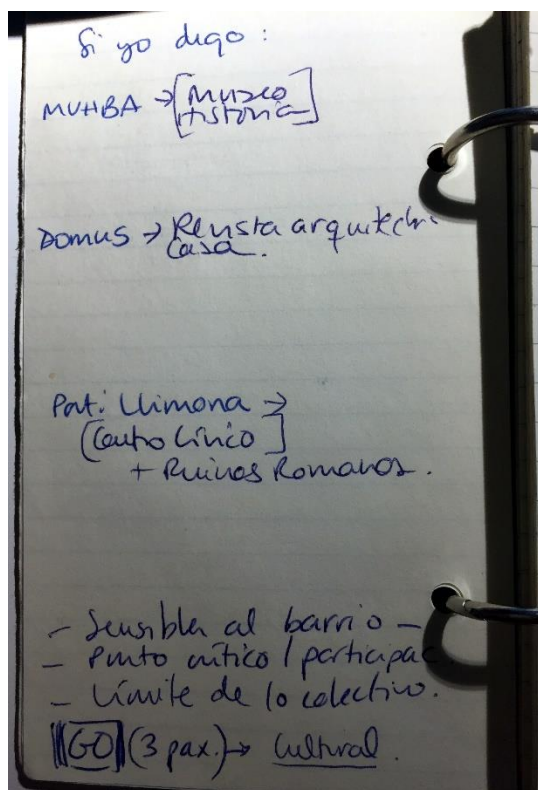 Si yo digo:
MUHBA → [Museo
Historia]
DOMUS → Revista arquitect
Casa.
Pati Llimona →
[Centro Cívico]
+ Ruinas Romanas.
- Sensible al barrio -
- Punto crítico / participac.
- Límite de lo colectivo.
GO (3 pax.) → Cultural.